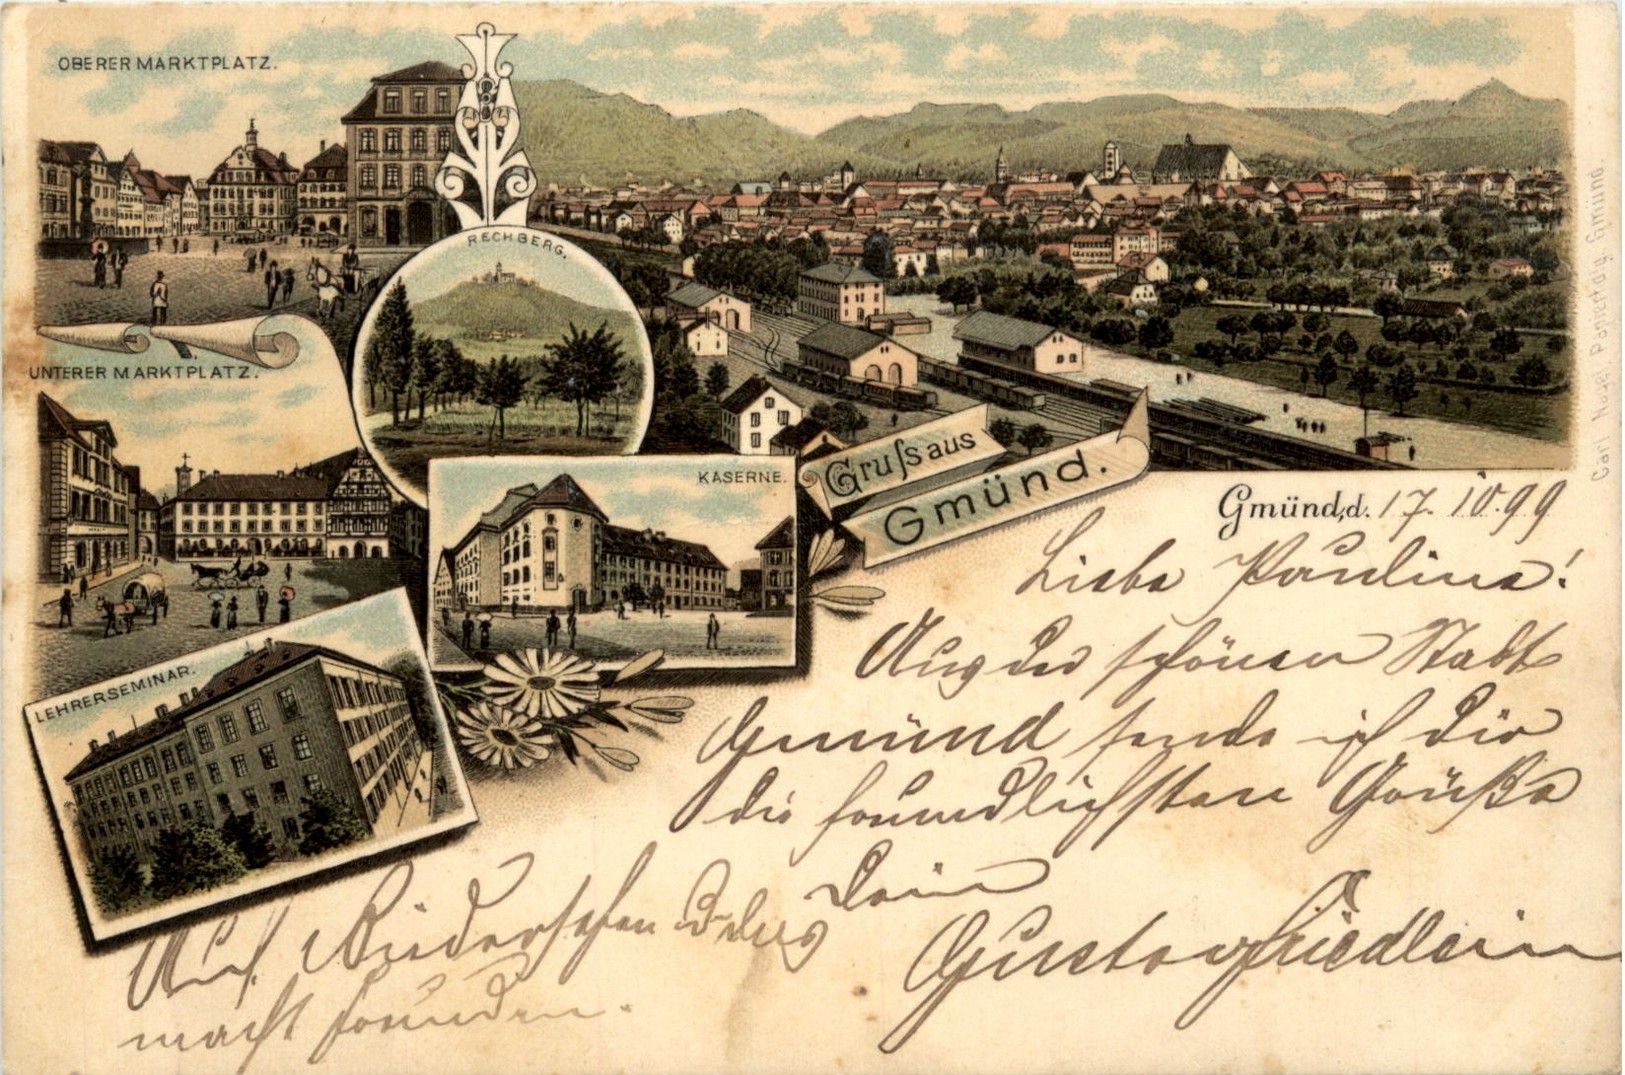 OBERER MARKTPLATZ.
RECHBERG.
UNTERER MARKTPLATZ.
KASERNE.
LEHRERSEMINAR.
Gruſs aus
Gmünd.
Gmünd, d. 17. 10. 99
Liebe Pauline!
Aus der schönen Stadt
Gmünd sende ich dir
die freundlichsten Grüße
Dein
Gustav Friedlein
Auf Wiedersehen
macht Freunden.
Carl Nagel Gmünd.